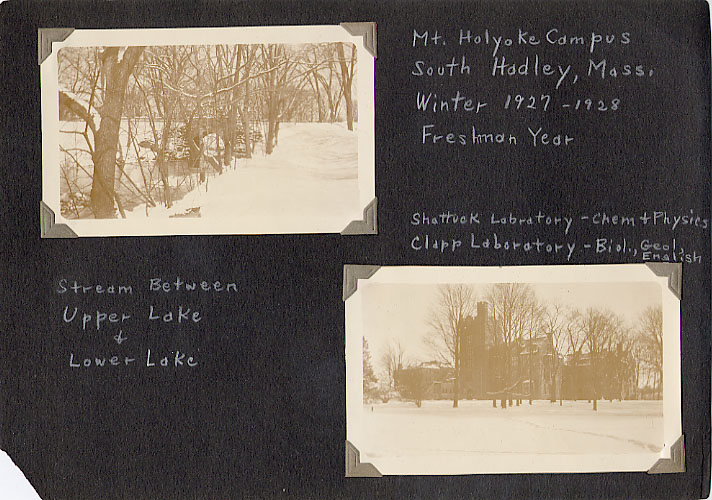 Mt. Holyoke Campus
South Hadley, Mass.
Winter 1927-1928
Freshman Year
Shattuck Labratory - Chem + Physics
Clapp Laboratory - Biol., Geol,
English
Stream Between
Upper Lake
&
Lower Lake